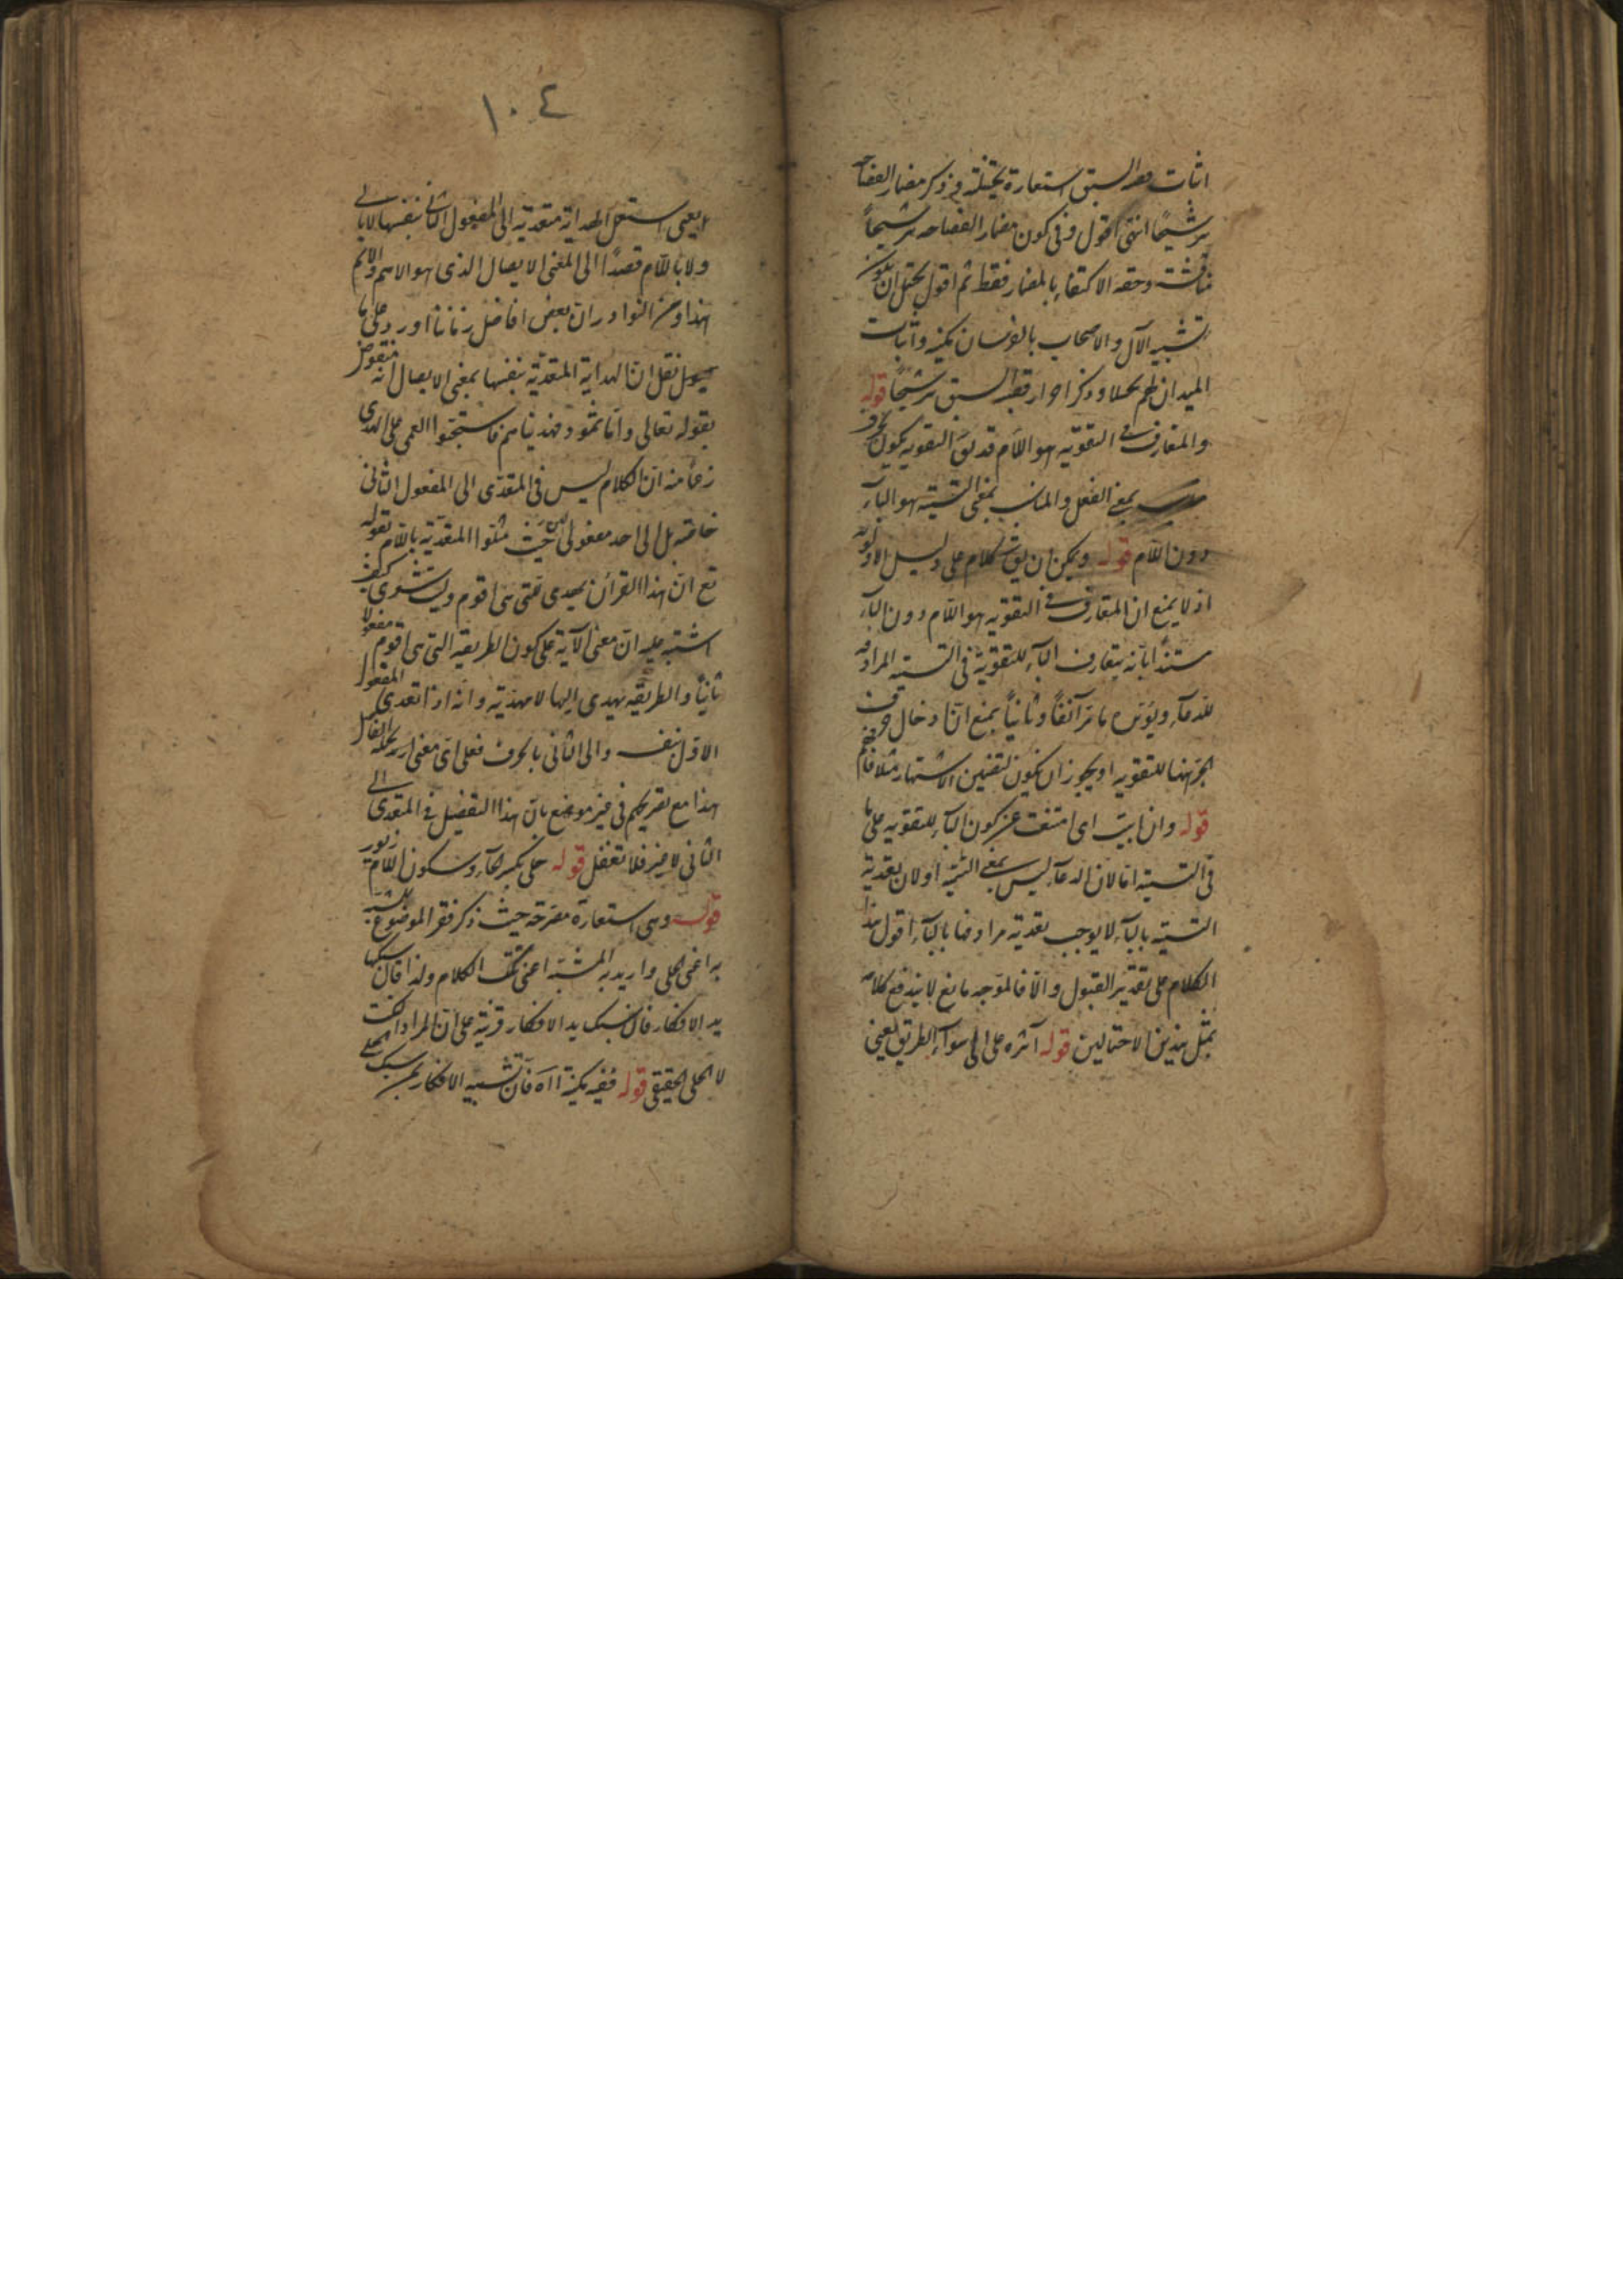 اثبات قصب السبق استعارة تخييلية وذكر مضمار الفصاحة
ترشيحًا انتهى اقول وفى كون مضمار الفصاحة ترشيحًا
مناقشة وحقه الاكتفاء بالمضمار فقط ثم اقول يحتمل ان يكون
تشبيه الآل والاصحاب بالفرسان مكنية واثبات
الميدان لهم تخييلا وذكر احراز قصب السبق ترشيحًا قوله
والمتعارف فى التقوية هو اللام قد يق التقوية يكون بحرف
بمعنى الفعل والمناسب بمعنى التسمية هو الباء
دون اللام قوله ويمكن ان يق الكلام على دليل الاولوية
اذ لا يمنع ان المتعارف فى التقوية هو اللام دون الباء
مستندًا بانه يتعارف الباء للتقوية فى التسمية المرادفة
للدعاء ويؤيده ما مر آنفًا وثانيًا يمنع ان ادخال حرف
الجر ههنا للتقوية اذ يجوز ان يكون لتضمين الاشتهار مثلا فافهم
قوله وان ابيت اى امتنعت عن كون الباء للتقوية على ما
فى التسمية اما لان الدعاء ليس بمعنى التسمية او لان تعدية
التسمية بالباء لا يوجب تعدية مرادفها بالباء اقول هذا
الكلام على تقدير القبول والا فالموجه مانع لا يندفع كلامه
بمثل هذين الاحتمالين قوله آثره على الى سواء الطريق يعنى
١٠٤
يعنى استعمل الهداية متعدية الى المفعول الثانى بنفسها لا بالى
ولا باللام قصدًا الى المعنى الايصال الذى هو الاهم والاتم
هذا ومن النوادر ان بعض افاضل زماننا اورد على ما
نقل ان الهداية المتعدية بنفسها بمعنى الايصال انه منقوض
بقوله تعالى واما ثمود فهديناهم فاستحبوا العمى على الهدى
زعمًا منه ان الكلام ليس فى المتعدى الى المفعول الثانى
خاصة بل الى احد مفعولى حيث مثلوا المتعدية باللام بقوله
تع ان هذا القرآن يهدى للتى هى اقوم وليت شعرى كيف
اشتبه عليه ان معنى الآية على كون الطريقة التى هى اقوم مفعولا
ثانيًا والطريقة يهدى اليها لا مهدية وانه اذا تعدى المفعول
الاول بنفسه والى الثانى بالحرف فعلى اى معنى يحمله القائل
هذا مع تصريحهم فى غير موضع بان هذا التفصيل فى المتعدى الى
الثانى لا غير فلا تغفل قوله حلى بكسر الحاء وسكون اللام زيور
قوله وهى استعارة مصرحة حيث ذكر فقر الموضوع للمشبه
به اعنى الحلى واريد به المشبه اعنى نكت الكلام ولذا قال سبكها
يد الافكار فان سبك يد الافكار قرينة على ان المراد النكت
لا الحلى الحقيقى قوله ففيه مكنية اه فان تشبيه الافكار بمن سبك الحلى